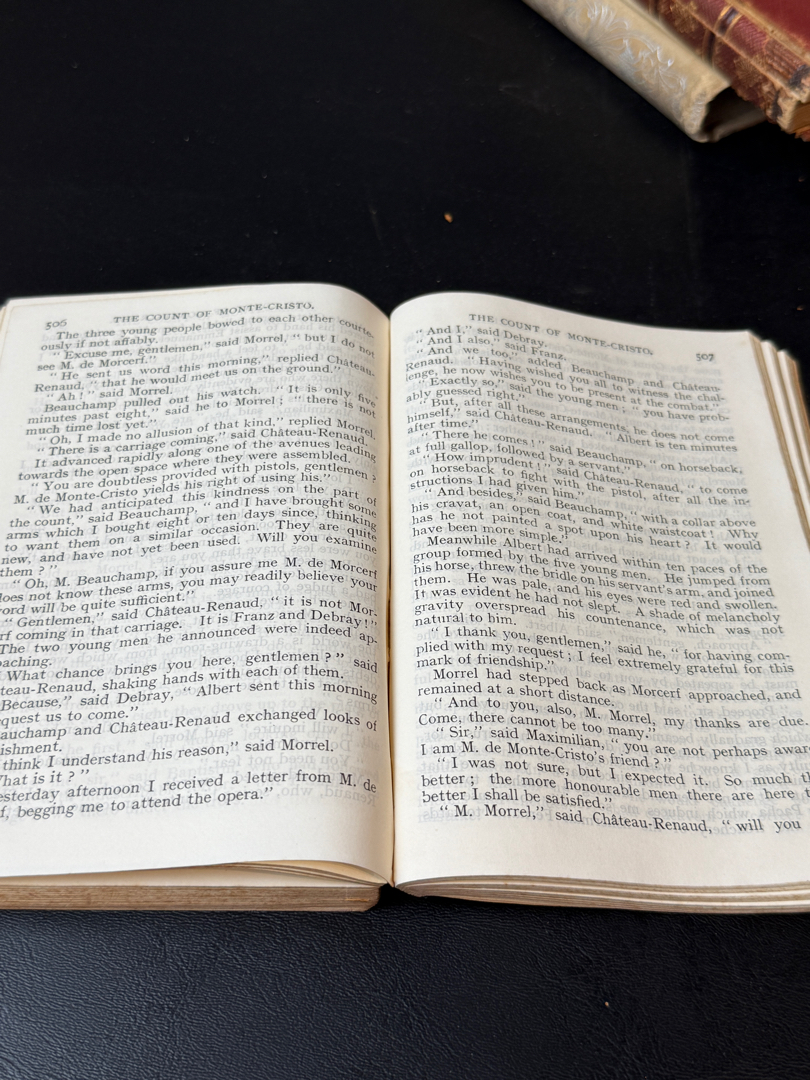 506
THE COUNT OF MONTE-CRISTO.
The three young people bowed to each other courte-
ously if not affably.
“ Excuse me, gentlemen,” said Morrel, “ but I do not
see M. de Morcerf.”
“ He sent us word this morning,” replied Château-
Renaud, “ that he would meet us on the ground.”
“ Ah ! ” said Morrel.
Beauchamp pulled out his watch. “ It is only five
minutes past eight,” said he to Morrel ; “ there is not
much time lost yet.”
“ Oh, I made no allusion of that kind,” replied Morrel.
“ There is a carriage coming,” said Château-Renaud.
It advanced rapidly along one of the avenues leading
towards the open space where they were assembled.
“ You are doubtless provided with pistols, gentlemen ?
M. de Monte-Cristo yields his right of using his.”
“ We had anticipated this kindness on the part of
the count,” said Beauchamp, “ and I have brought some
arms which I bought eight or ten days since, thinking
to want them on a similar occasion. They are quite
new, and have not yet been used. Will you examine
them ? ”
“ Oh, M. Beauchamp, if you assure me M. de Morcerf
does not know these arms, you may readily believe your
ord will be quite sufficient.”
“ Gentlemen,” said Château-Renaud, “ it is not Mor-
rf coming in that carriage. It is Franz and Debray ! ”
The two young men he announced were indeed ap-
oaching.
What chance brings you here, gentlemen ? ” said
teau-Renaud, shaking hands with each of them.
Because,” said Debray, “ Albert sent this morning
quest us to come.”
auchamp and Château-Renaud exchanged looks of
ishment.
think I understand his reason,” said Morrel.
hat is it ? ”
esterday afternoon I received a letter from M. de
f, begging me to attend the opera.”
THE COUNT OF MONTE-CRISTO.
507
“ And I,” said Debray.
“ And I also,” said Franz.
“ And we too,” added Beauchamp and Château-
Renaud. “ Having wished you all to witness the chal-
lenge, he now wishes you to be present at the combat.”
“ Exactly so,” said the young men ; “ you have prob-
ably guessed right.”
“ But, after all these arrangements, he does not come
himself,” said Château-Renaud. “ Albert is ten minutes
after time.”
“ There he comes ! ” said Beauchamp, “ on horseback,
at full gallop, followed by a servant.”
“ How imprudent ! ” said Château-Renaud, “ to come
on horseback to fight with the pistol, after all the in-
structions I had given him.”
“ And besides,” said Beauchamp, “ with a collar above
his cravat, an open coat, and white waistcoat ! Why
has he not painted a spot upon his heart ? It would
have been more simple.”
Meanwhile Albert had arrived within ten paces of the
group formed by the five young men. He jumped from
his horse, threw the bridle on his servant’s arm, and joined
them. He was pale, and his eyes were red and swollen.
It was evident he had not slept. A shade of melancholy
gravity overspread his countenance, which was not
natural to him.
“ I thank you, gentlemen,” said he, “ for having com-
plied with my request ; I feel extremely grateful for this
mark of friendship.”
Morrel had stepped back as Morcerf approached, and
remained at a short distance.
“ And to you, also, M. Morrel, my thanks are due.
Come, there cannot be too many.”
“ Sir,” said Maximilian, “ you are not perhaps awar
I am M. de Monte-Cristo’s friend ? ”
“ I was not sure, but I expected it. So much th
better ; the more honourable men there are here t
better I shall be satisfied.”
“ M. Morrel,” said Château-Renaud, “ will you